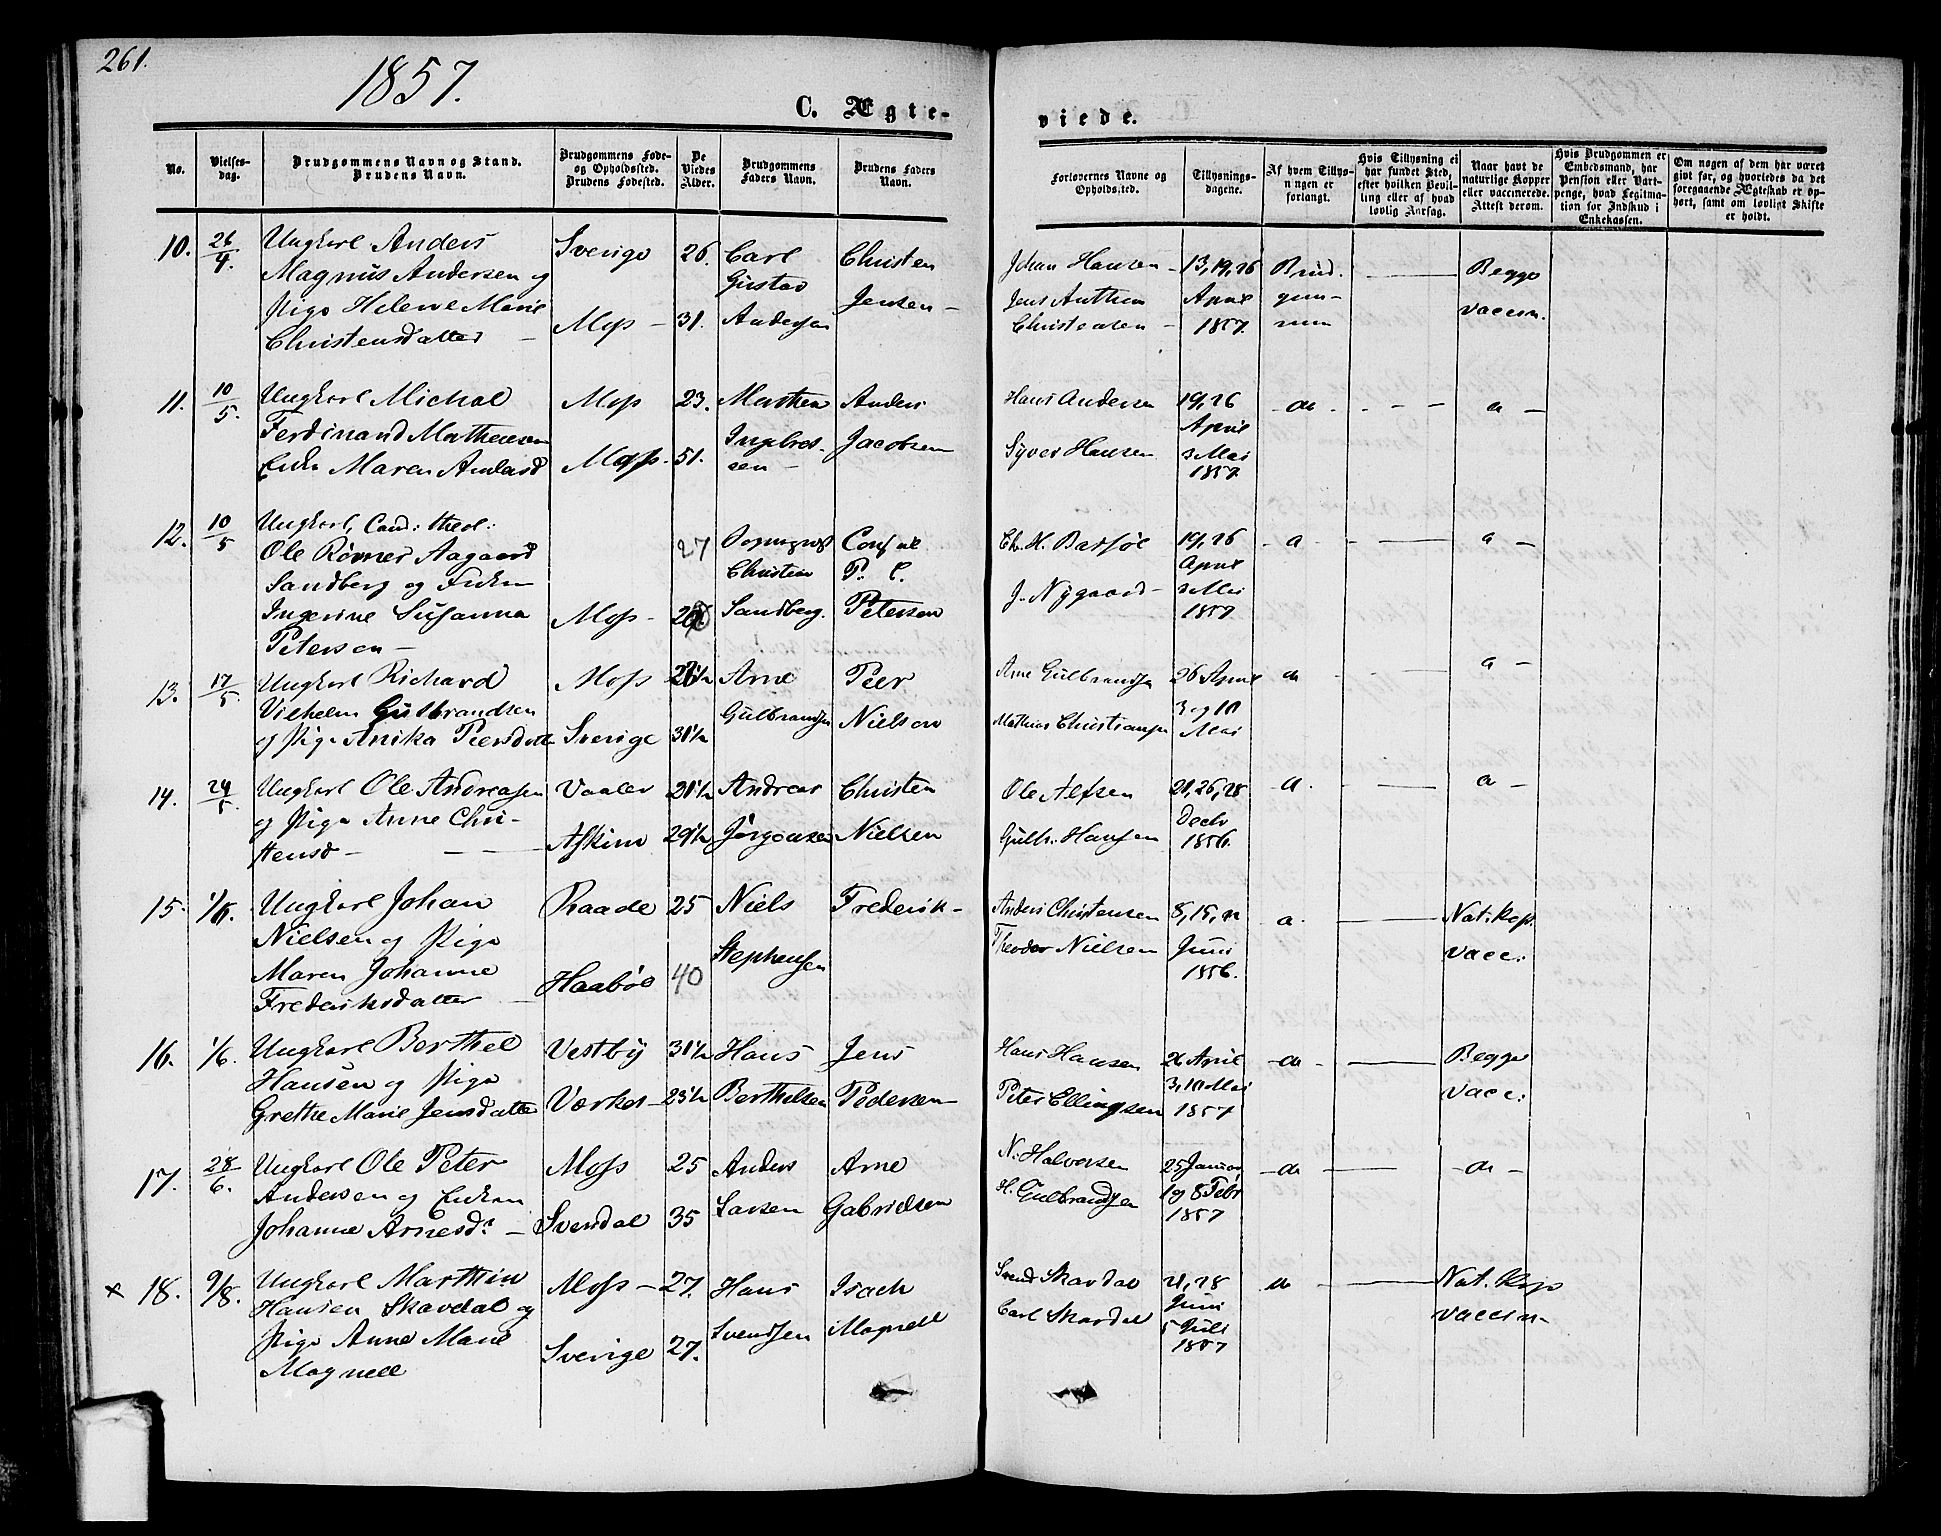 261.
1857.
C. Ægte-
viede.
No.
Vielses-
dag.
Brudgommens Navn og Stand.
Brudens Navn.
Brudgommens Føde-
og Opholdssted.
Brudens Fødested.
De
Viedes
Alder.
Brudgommens
Faders Navn.
Brudens Faders
Navn.
Forlovernes Navne og
Opholdssted.
Tillysnings-
dagene.
Af hvem Tillys-
ningen er
forlangt.
Hvis Tillysning ei
har fundet Sted,
efter hvilken Bevil-
ling eller af hvad
lovlig Aarsag.
Naar havt de
naturlige Kopper
eller vaccinerede.
Attest derom.
Hvis Brudgommen er
Embedsmand, har
Pension eller Vart-
penge, hvad Legitima-
tion for Indskud i
Enkekassen.
Om nogen af dem har været
givt før, og hvorledes da det
foregaaende Ægteskab er op-
hørt, samt om lovligt Skifte
er holdt.
10. 26/4. Ungkarl Anders Sverige 26. Carl Christen Johan Hansen 13, 19, 26 Brud- Beggo
Magnus Andersen og Gustav Jensen Jens Anthon April gom- vaccin.
Pige Helene Marie Moss 31. Andersen Christensen 1857. men
Christensdatter
11. 10/5. Ungkarl Michal Moss 23. Marthen Anders Hans Andersen 19, 26 do a
Ferdinand Mathensen Ingebret- Jacobsen April
Enke Maren Andersd Moss 51. sen Syver Hansen 3 Mai
1857
12. 10/5 Ungkarl, Cand: theol: 27 Sogneprest Consul Ch. H. 19, 26 a a
Ole Rømer Aagaard Christian P. C. April
Sandberg og Frøken Sandberg. Petersen J. Nygaard 3 Mai
Ingerine Susanna Moss 1857
Petersen
13. 17/5 Ungkarl Richard Moss 26½ Arne Peer Arne Gulbrandsen 26 April do a
Vilhelm Gulbrandsen Gulbrandsen Nielson Mathias Christiansen 3 og 10
og Pige Anika Peersdatt Sverige 31½ Mai
14. 24/5 Ungkarl Ole Andreasen Vaaler 21½ Andreas Christen Ole Alfsen 21, 26, 28 a a
og Pige Anne Chri- Askim 29½ Jørgensen Nielsen Gulb. Hansen Decbr
stensd 1856.
15. 1/6. Ungkarl Johan Raade 25 Niels Frederik Anders Christensen 8, 15, 22 a. Nat. Kop.
Nielsen og Pige Stephensen Theodor Nielsen Juni vacc:
Maren Johanne Haabøl 40 1856.
Frederiksdatter
16. 1/6. Ungkarl Berthel Vestby 31½ Hans Jens Hans Hansen 26 April do Begge
Hansen og Pige Berthelsen Pedersen Peter Ellingsen 3, 10 Mai vacc:
Grethe Marie Jensdatter Værket 25½ 1857
17. 28/6. Ungkarl Ole Peter Moss 25 Anders Arne N. Halvorsen 25 Januar do do
Andersen og Enken Larsen Gabrielsen H. Gulbrandsen 1 og 8 Febr
Johanne Arnesd: Svendal 35 1857
x 18. 9/8. Ungkarl Marthin Moss 27. Hans Isach Svend Skavdal 21, 28 do Nat. Kop
Hansen Skavdal og Svendsen Magnell Carl Skavdal Juni vaccin
Pige Anne Marie Sverige 27. 5 Juli
Magnell 1857